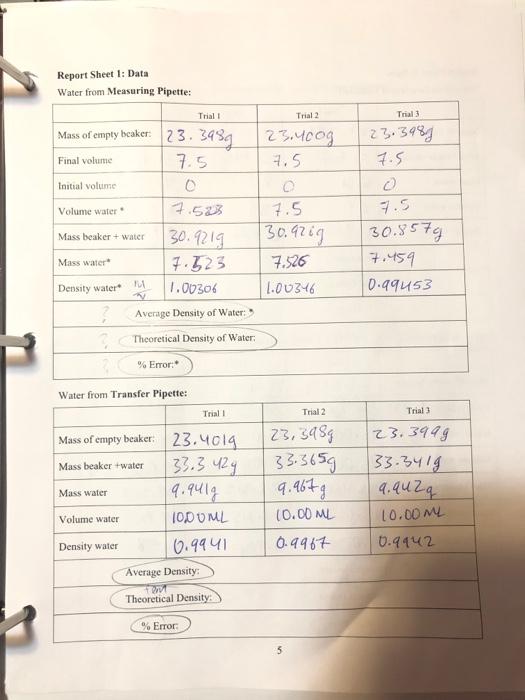 Report Sheet 1: Data
Water from Measuring Pipette:
Trial 1 Trial 2 Trial 3
Mass of empty beaker: 23.398g 23.400g 23.398g
Final volume 7.5 7.5 7.5
Initial volume 0 0 0
Volume water * 7.5 7.5
Mass beaker + water 30.921g 30.926g 30.857g
Mass water* 7.523 7.526 7.459
Density water* M/V 1.00306 1.00346 0.99453
? Average Density of Water: *
? Theoretical Density of Water:
? % Error:*
Water from Transfer Pipette:
Trial 1 Trial 2 Trial 3
Mass of empty beaker: 23.401g 23.398g 23.399g
Mass beaker +water 33.342g 33.365g 33.341g
Mass water 9.941g 9.967g 9.942g
Volume water 10.00ML 10.00 ML 10.00 ML
Density water 0.9941 0.9967 0.9942
Average Density:
Theoretical Density:
% Error:
5